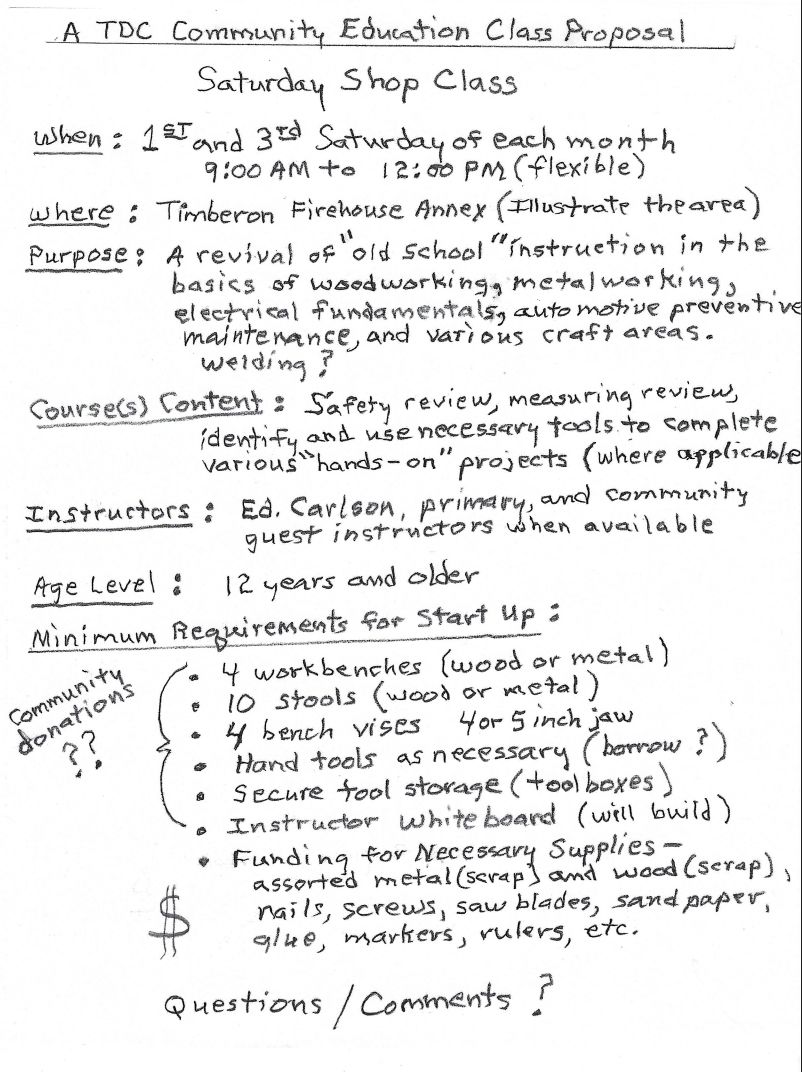 A TDC Community Education Class Proposal
Saturday Shop Class
When: 1ST and 3rd Saturday of each month
9:00 AM to 12:00 PM (flexible)
Where: Timberon Firehouse Annex (Illustrate the area)
Purpose: A revival of "old school" instruction in the
basics of woodworking, metalworking,
electrical fundamentals, automotive preventive
maintenance, and various craft areas.
welding?
Course(s) Content: Safety review, measuring review,
identify and use necessary tools to complete
various "hands-on" projects (where applicable
Instructors: Ed. Carlson, primary, and community
guest instructors when available
Age Level: 12 years and older
Minimum Requirements for Start Up:
Community
donations
??
• 4 workbenches (wood or metal)
• 10 stools (wood or metal)
• 4 bench vises 4 or 5 inch jaw
• Hand tools as necessary (borrow?)
• Secure tool storage (toolboxes)
• Instructor Whiteboard (will build)
• Funding for Necessary Supplies -
assorted metal (scrap) and wood (scrap),
nails, screws, saw blades, sand paper,
glue, markers, rulers, etc.
$
Questions / Comments?